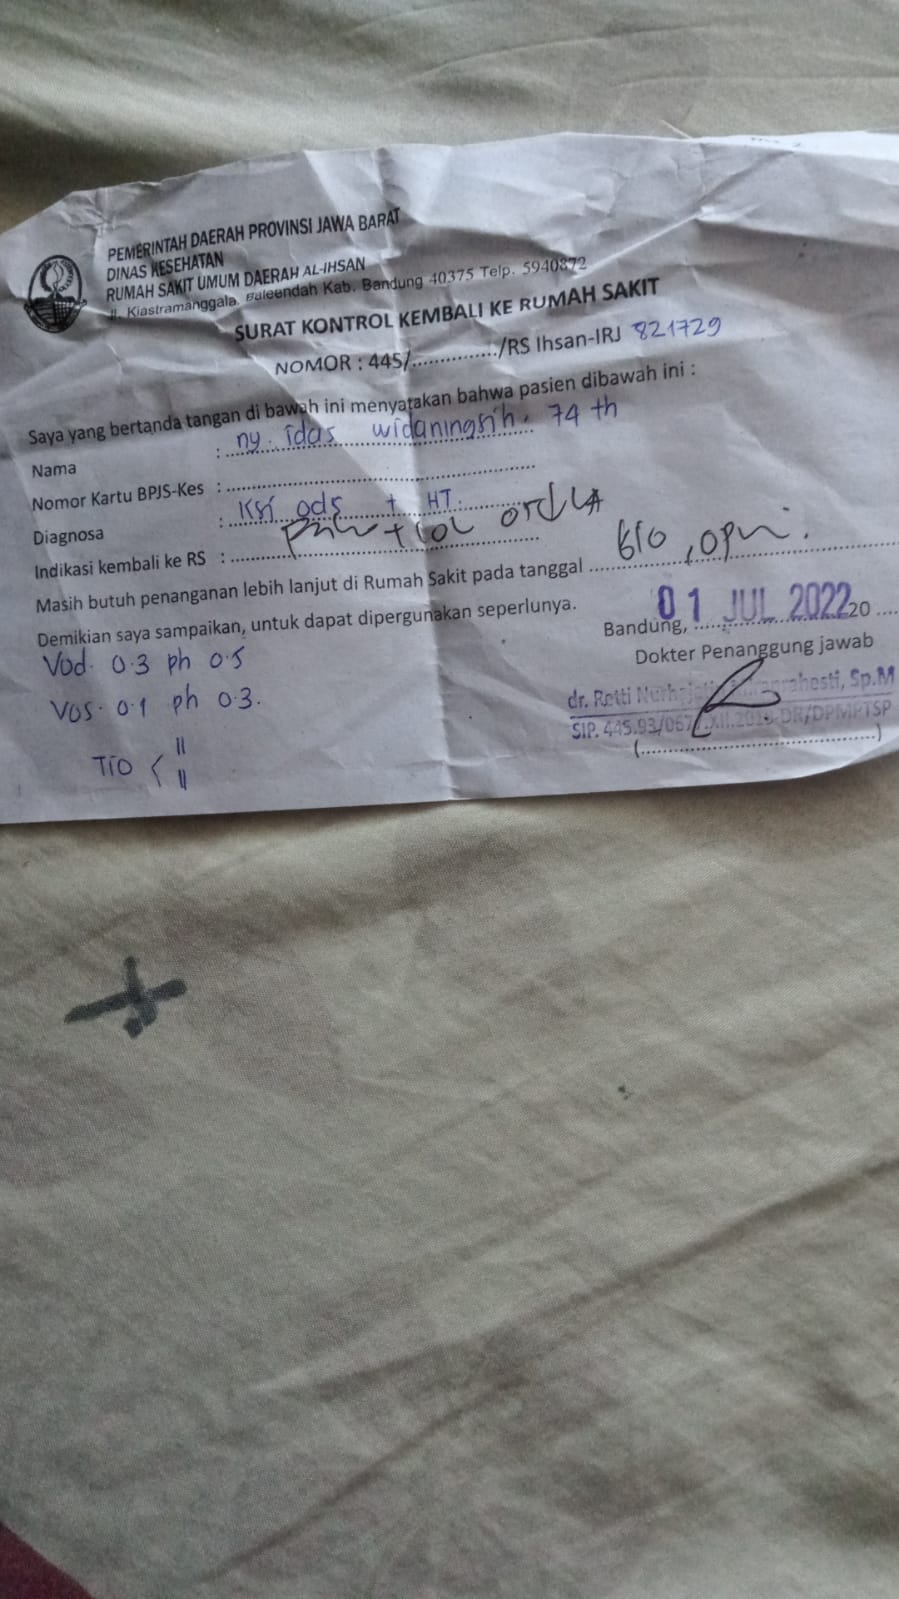 PEMERINTAH DAERAH PROVINSI JAWA BARAT
DINAS KESEHATAN
RUMAH SAKIT UMUM DAERAH AL-IHSAN
Jl. Kiastramanggala, Baleendah Kab. Bandung 40375 Telp. 5940872
SURAT KONTROL KEMBALI KE RUMAH SAKIT
NOMOR : 445/............../RS Ihsan-IRJ 821729
Saya yang bertanda tangan di bawah ini menyatakan bahwa pasien dibawah ini :
Nama : ny. idas widaningsih. 74 th
Nomor Kartu BPJS-Kes :
Diagnosa : KSI ods + HT.
Indikasi kembali ke RS :
Masih butuh penanganan lebih lanjut di Rumah Sakit pada tanggal
Demikian saya sampaikan, untuk dapat dipergunakan seperlunya.
Bandung, 01 JUL 2022 20 ....
Dokter Penanggung jawab
Vod. 0.3 ph 0.5
Vos. 0.1 ph 0.3.
TIO < ||
||
dr. Retti Sp.M
SIP. 445.93/067 DR/DPMPTSP
(..............................)